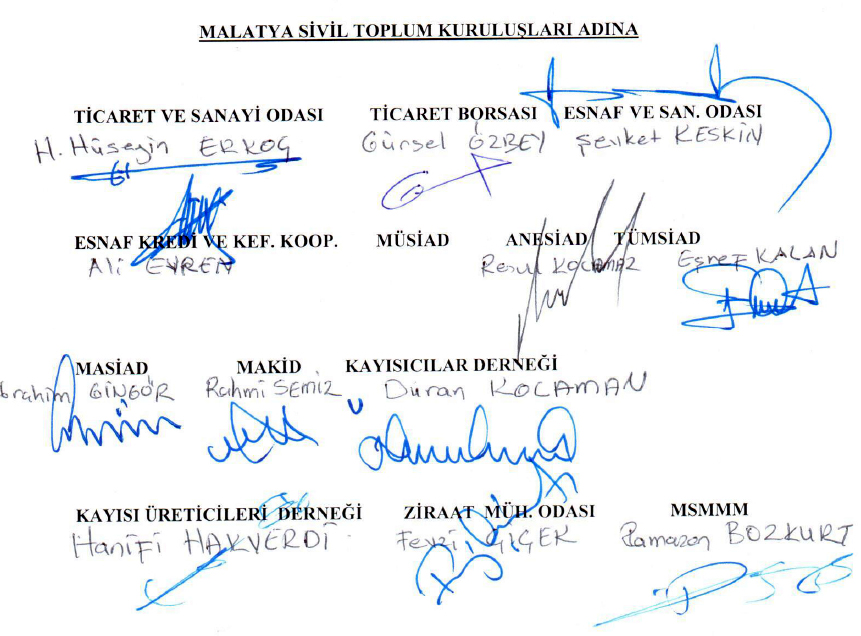 MALATYA SİVİL TOPLUM KURULUŞLARI ADINA
TİCARET VE SANAYİ ODASI TİCARET BORSASI ESNAF VE SAN. ODASI
H. Hüseyin ERKOÇ Gürsel ÖZBEY Şevket KESKİN
ESNAF KREDİ VE KEF. KOOP. MÜSİAD ANESİAD TÜMSİAD
Ali EVREN Resul KOCAMAZ Eşref KALAN
MASİAD MAKİD KAYISICILAR DERNEĞİ
brahim GÜNGÖR Rahmi SEMİZ Duran KOCAMAN
KAYISI ÜRETİCİLERİ DERNEĞİ ZİRAAT MÜH. ODASI MSMMM
Hanifi HAKVERDİ Fevzi ÇİÇEK Ramazan BOZKURT